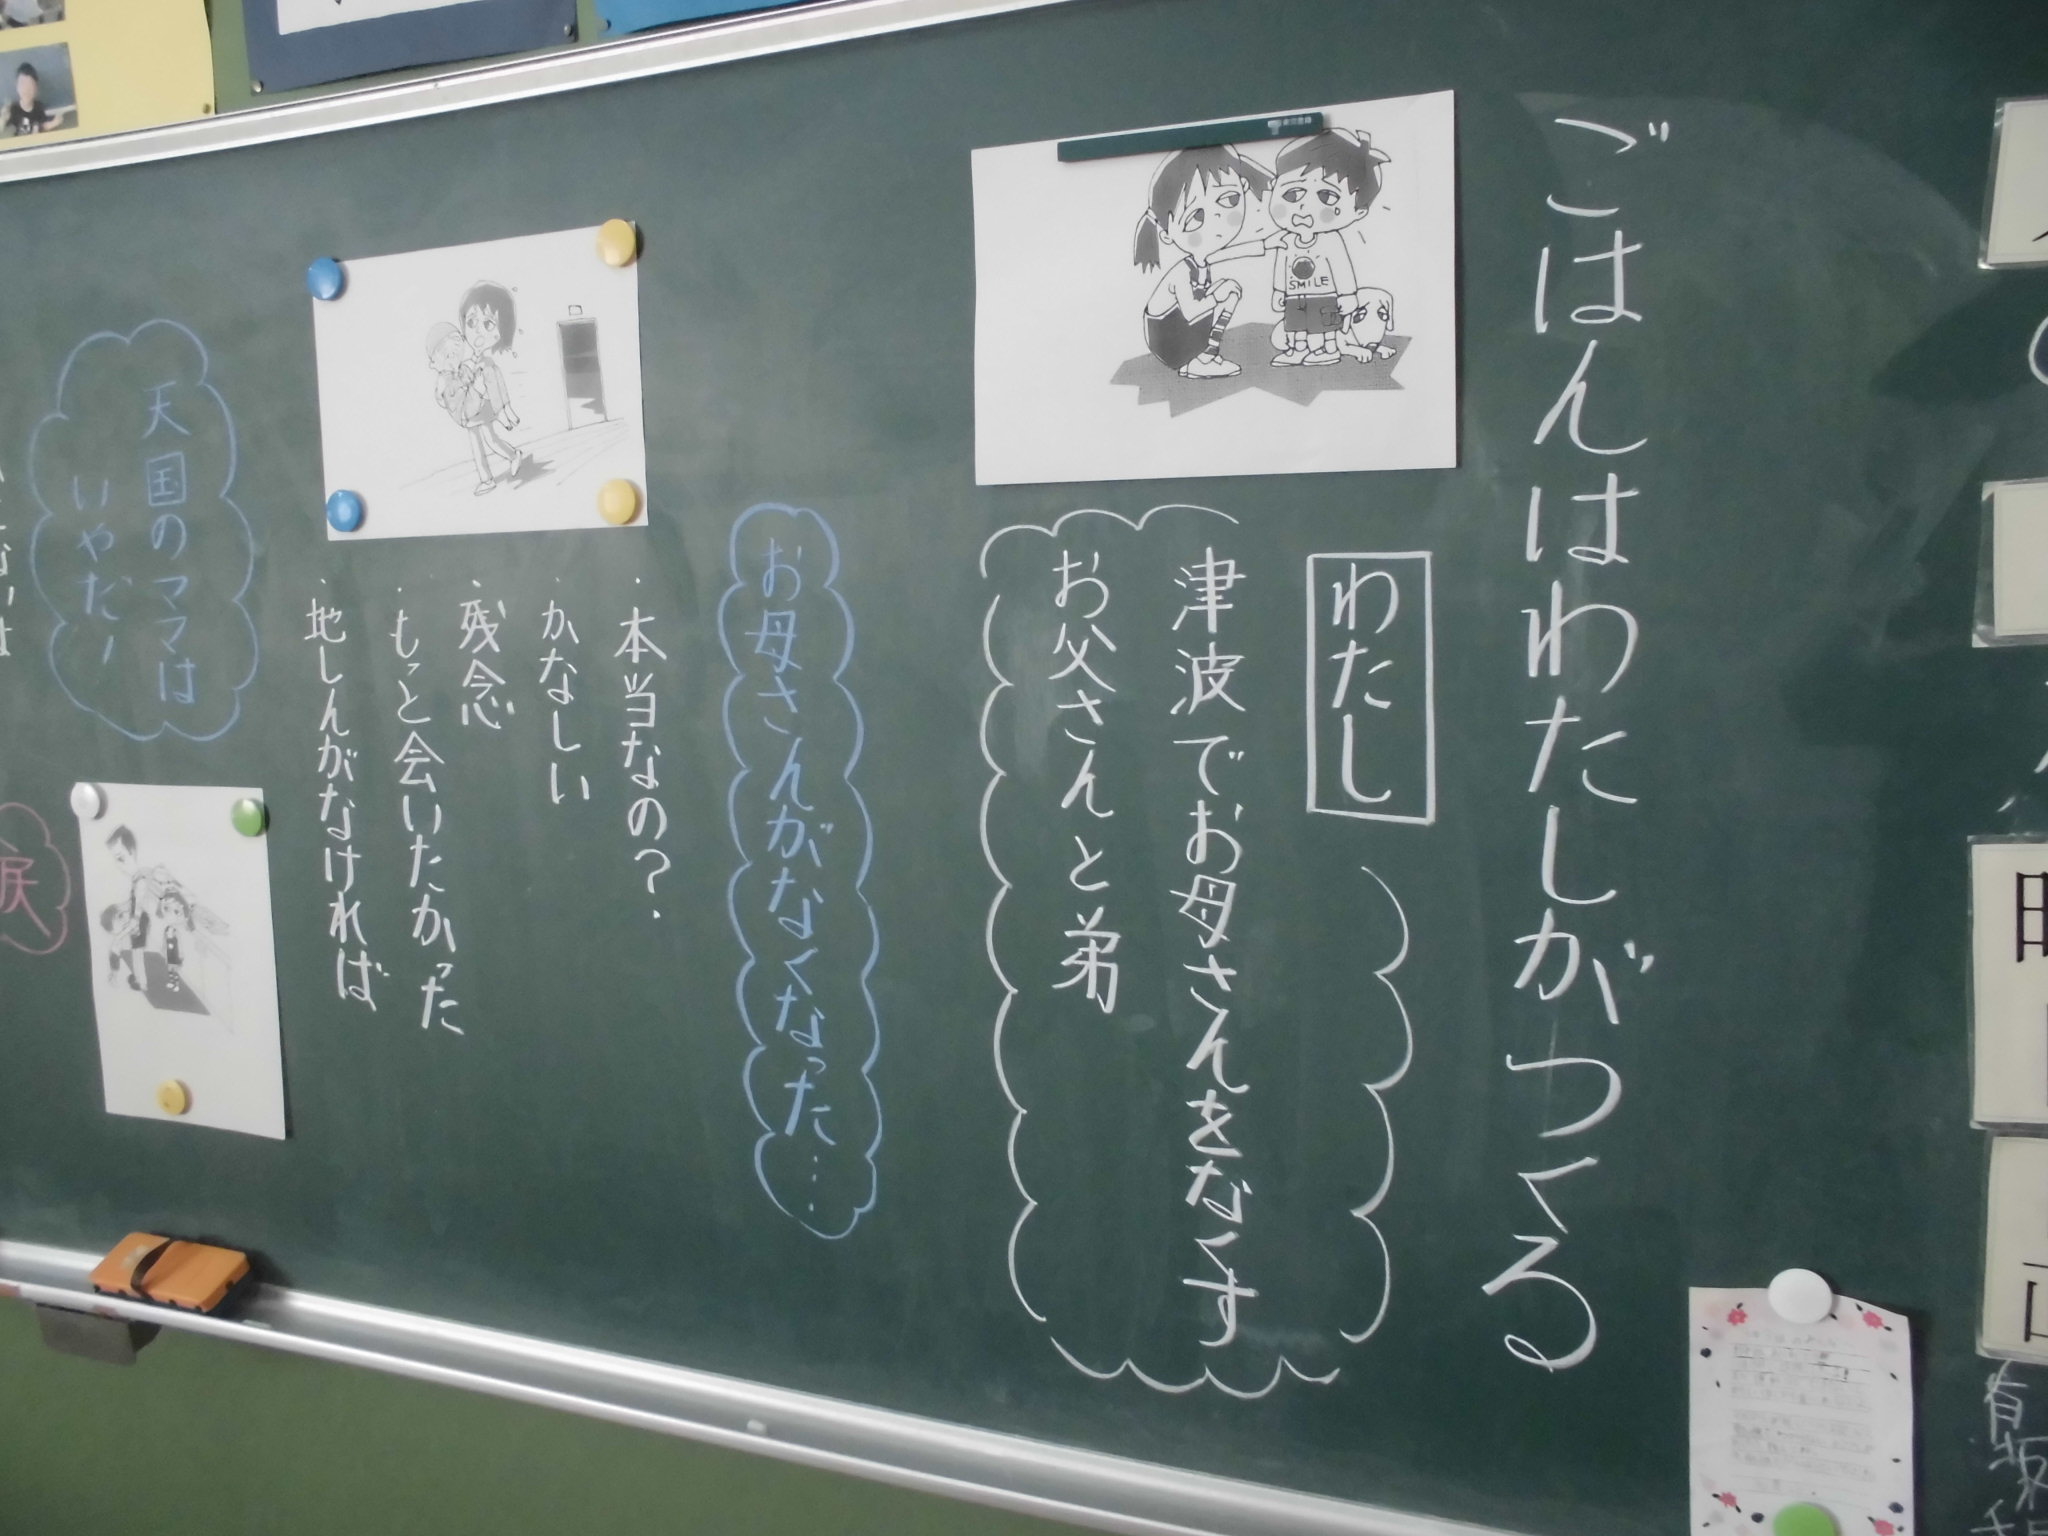 ごはんはわたしがつくる
SMILE
わたし
津波でお母さんをなくす
お父さんと弟
お母さんがなくなった…
・本当なの?
・かなしい
・残念
・もっと会いたかった
・地しんがなければ
天国のママは
いやだ!
涙